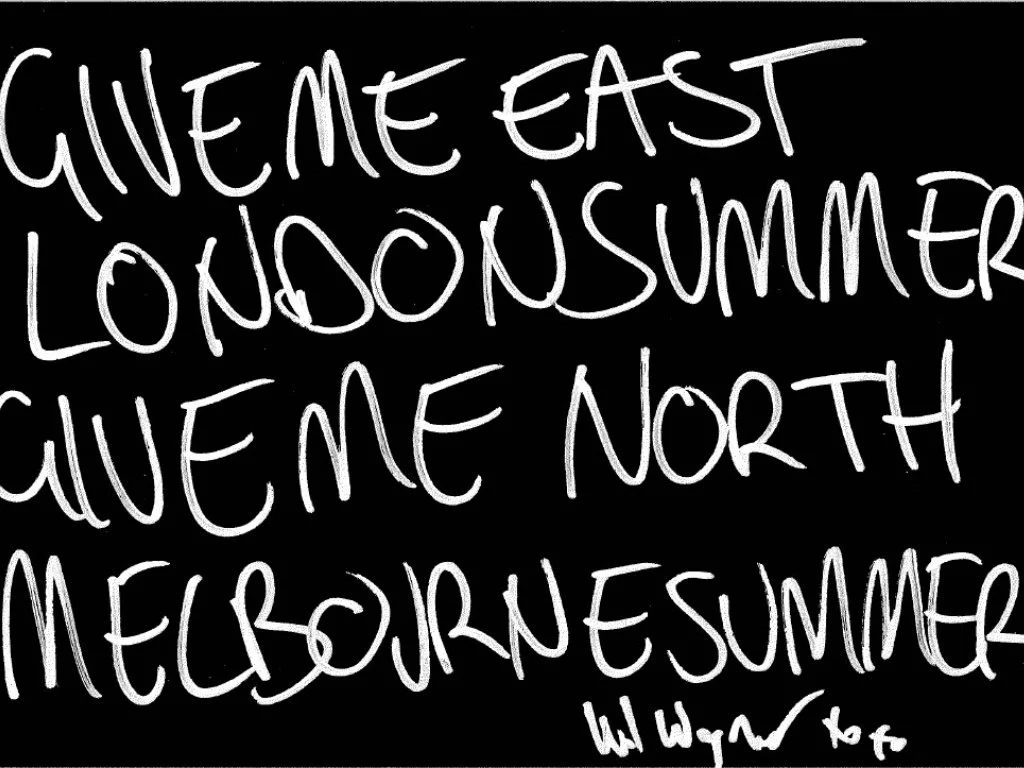 GIVE ME EAST
LONDON SUMMER
GIVE ME NORTH
MELBOURNE SUMMER